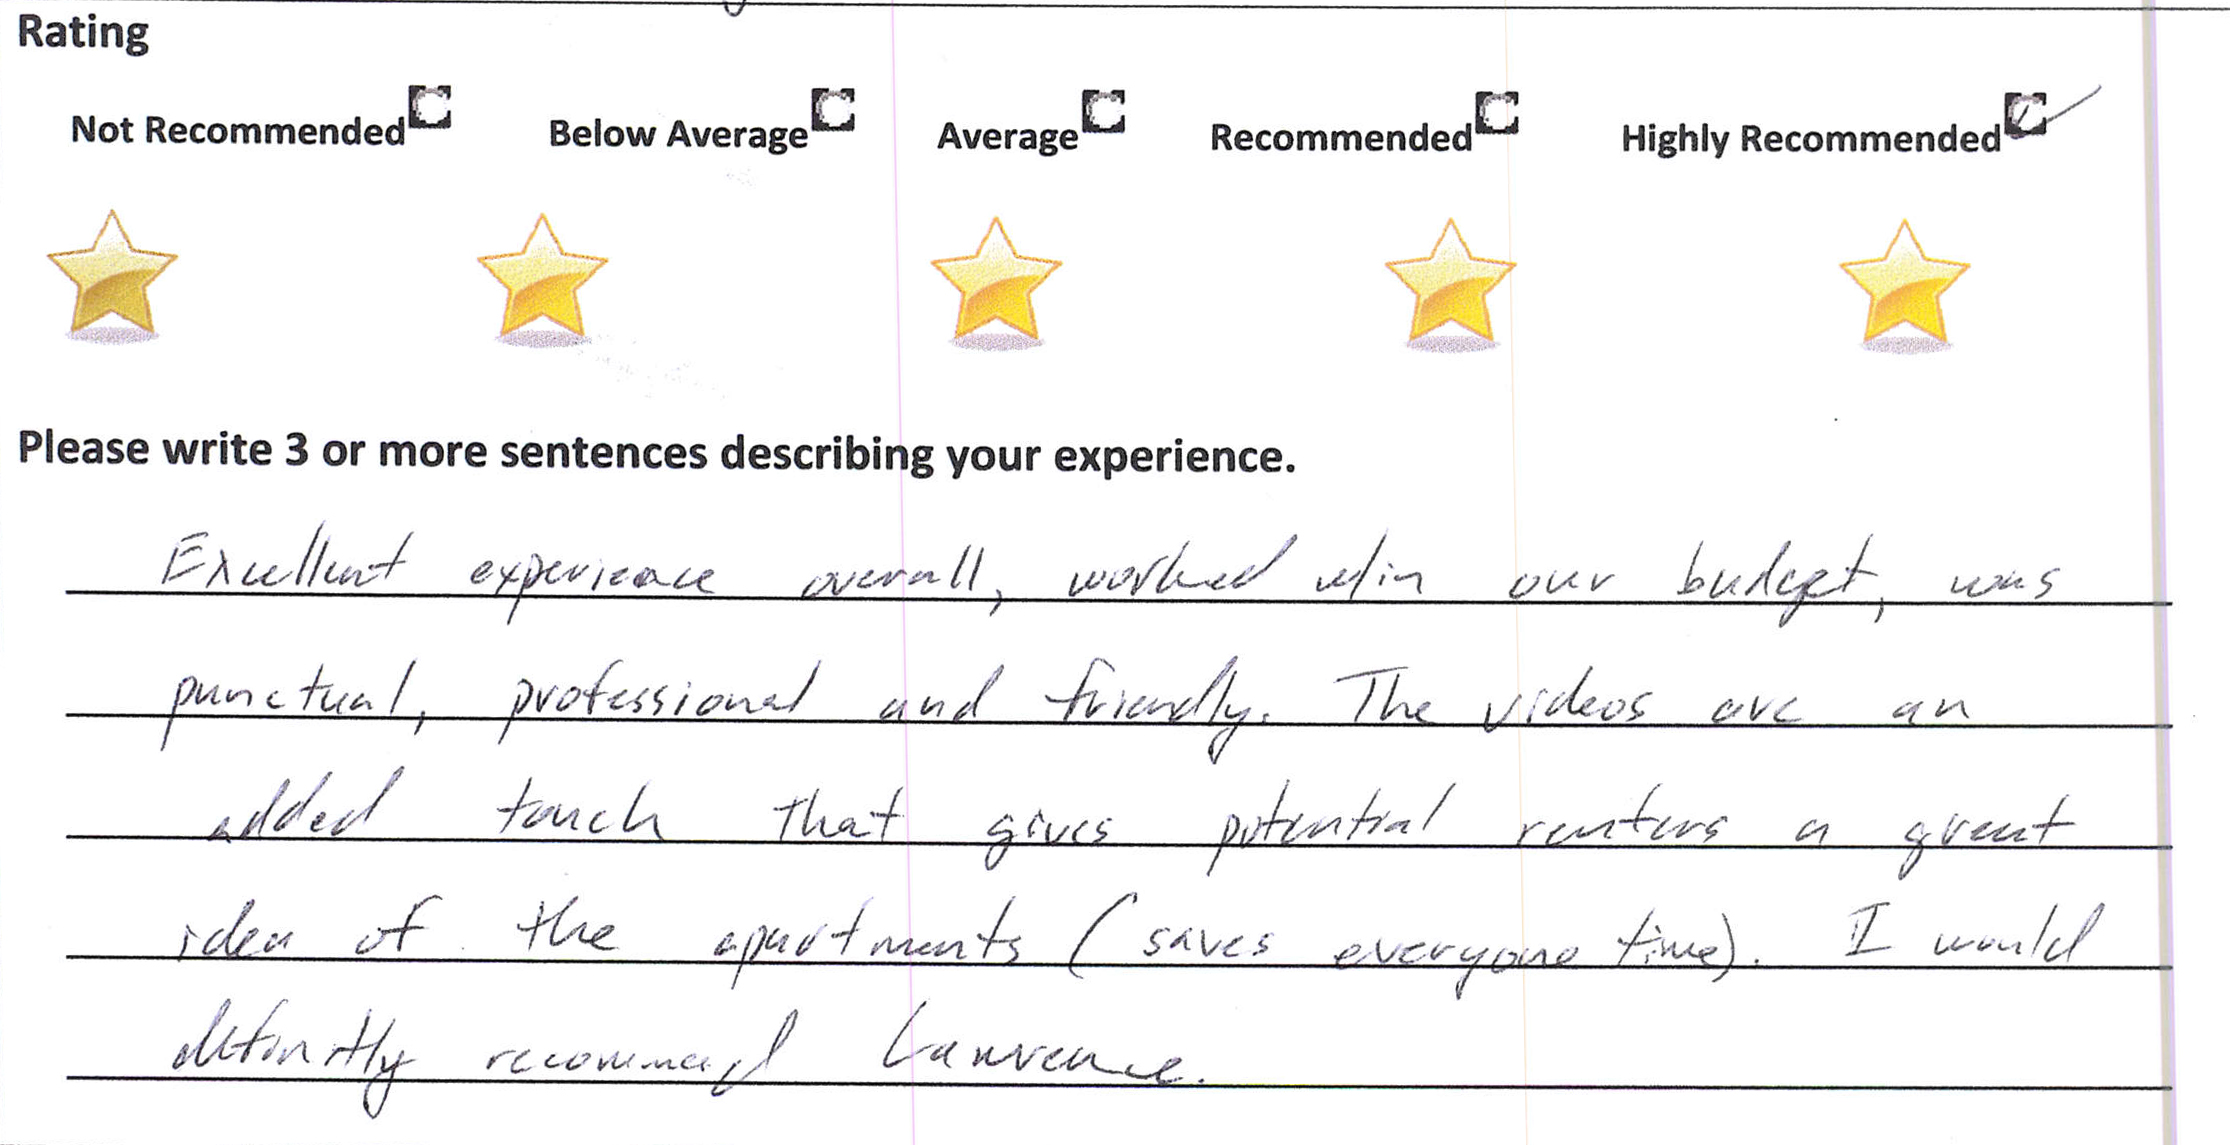 Rating
Not Recommended Below Average Average Recommended Highly Recommended
Please write 3 or more sentences describing your experience.
Excellent experience overall, worked w/in our budget, was
punctual, professional and friendly. The videos are an
added touch that gives potential renters a great
idea of the apartments (saves everyone time). I would
definitly recommend Lawrence.